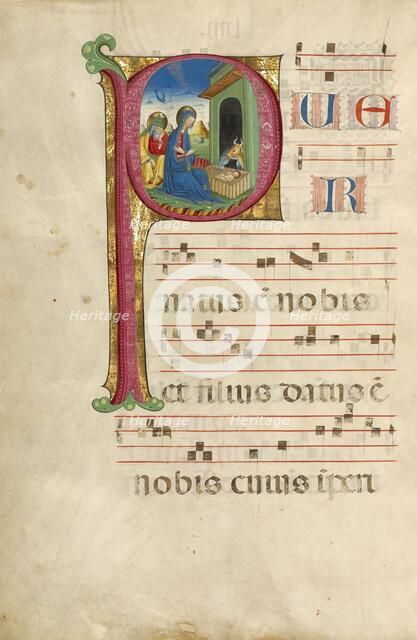 PUE
R
natus ē nobis
et filius datus ē
nobis cuius īperi
Heritage Heritage
Heritage Heritage
Heritage Heritage